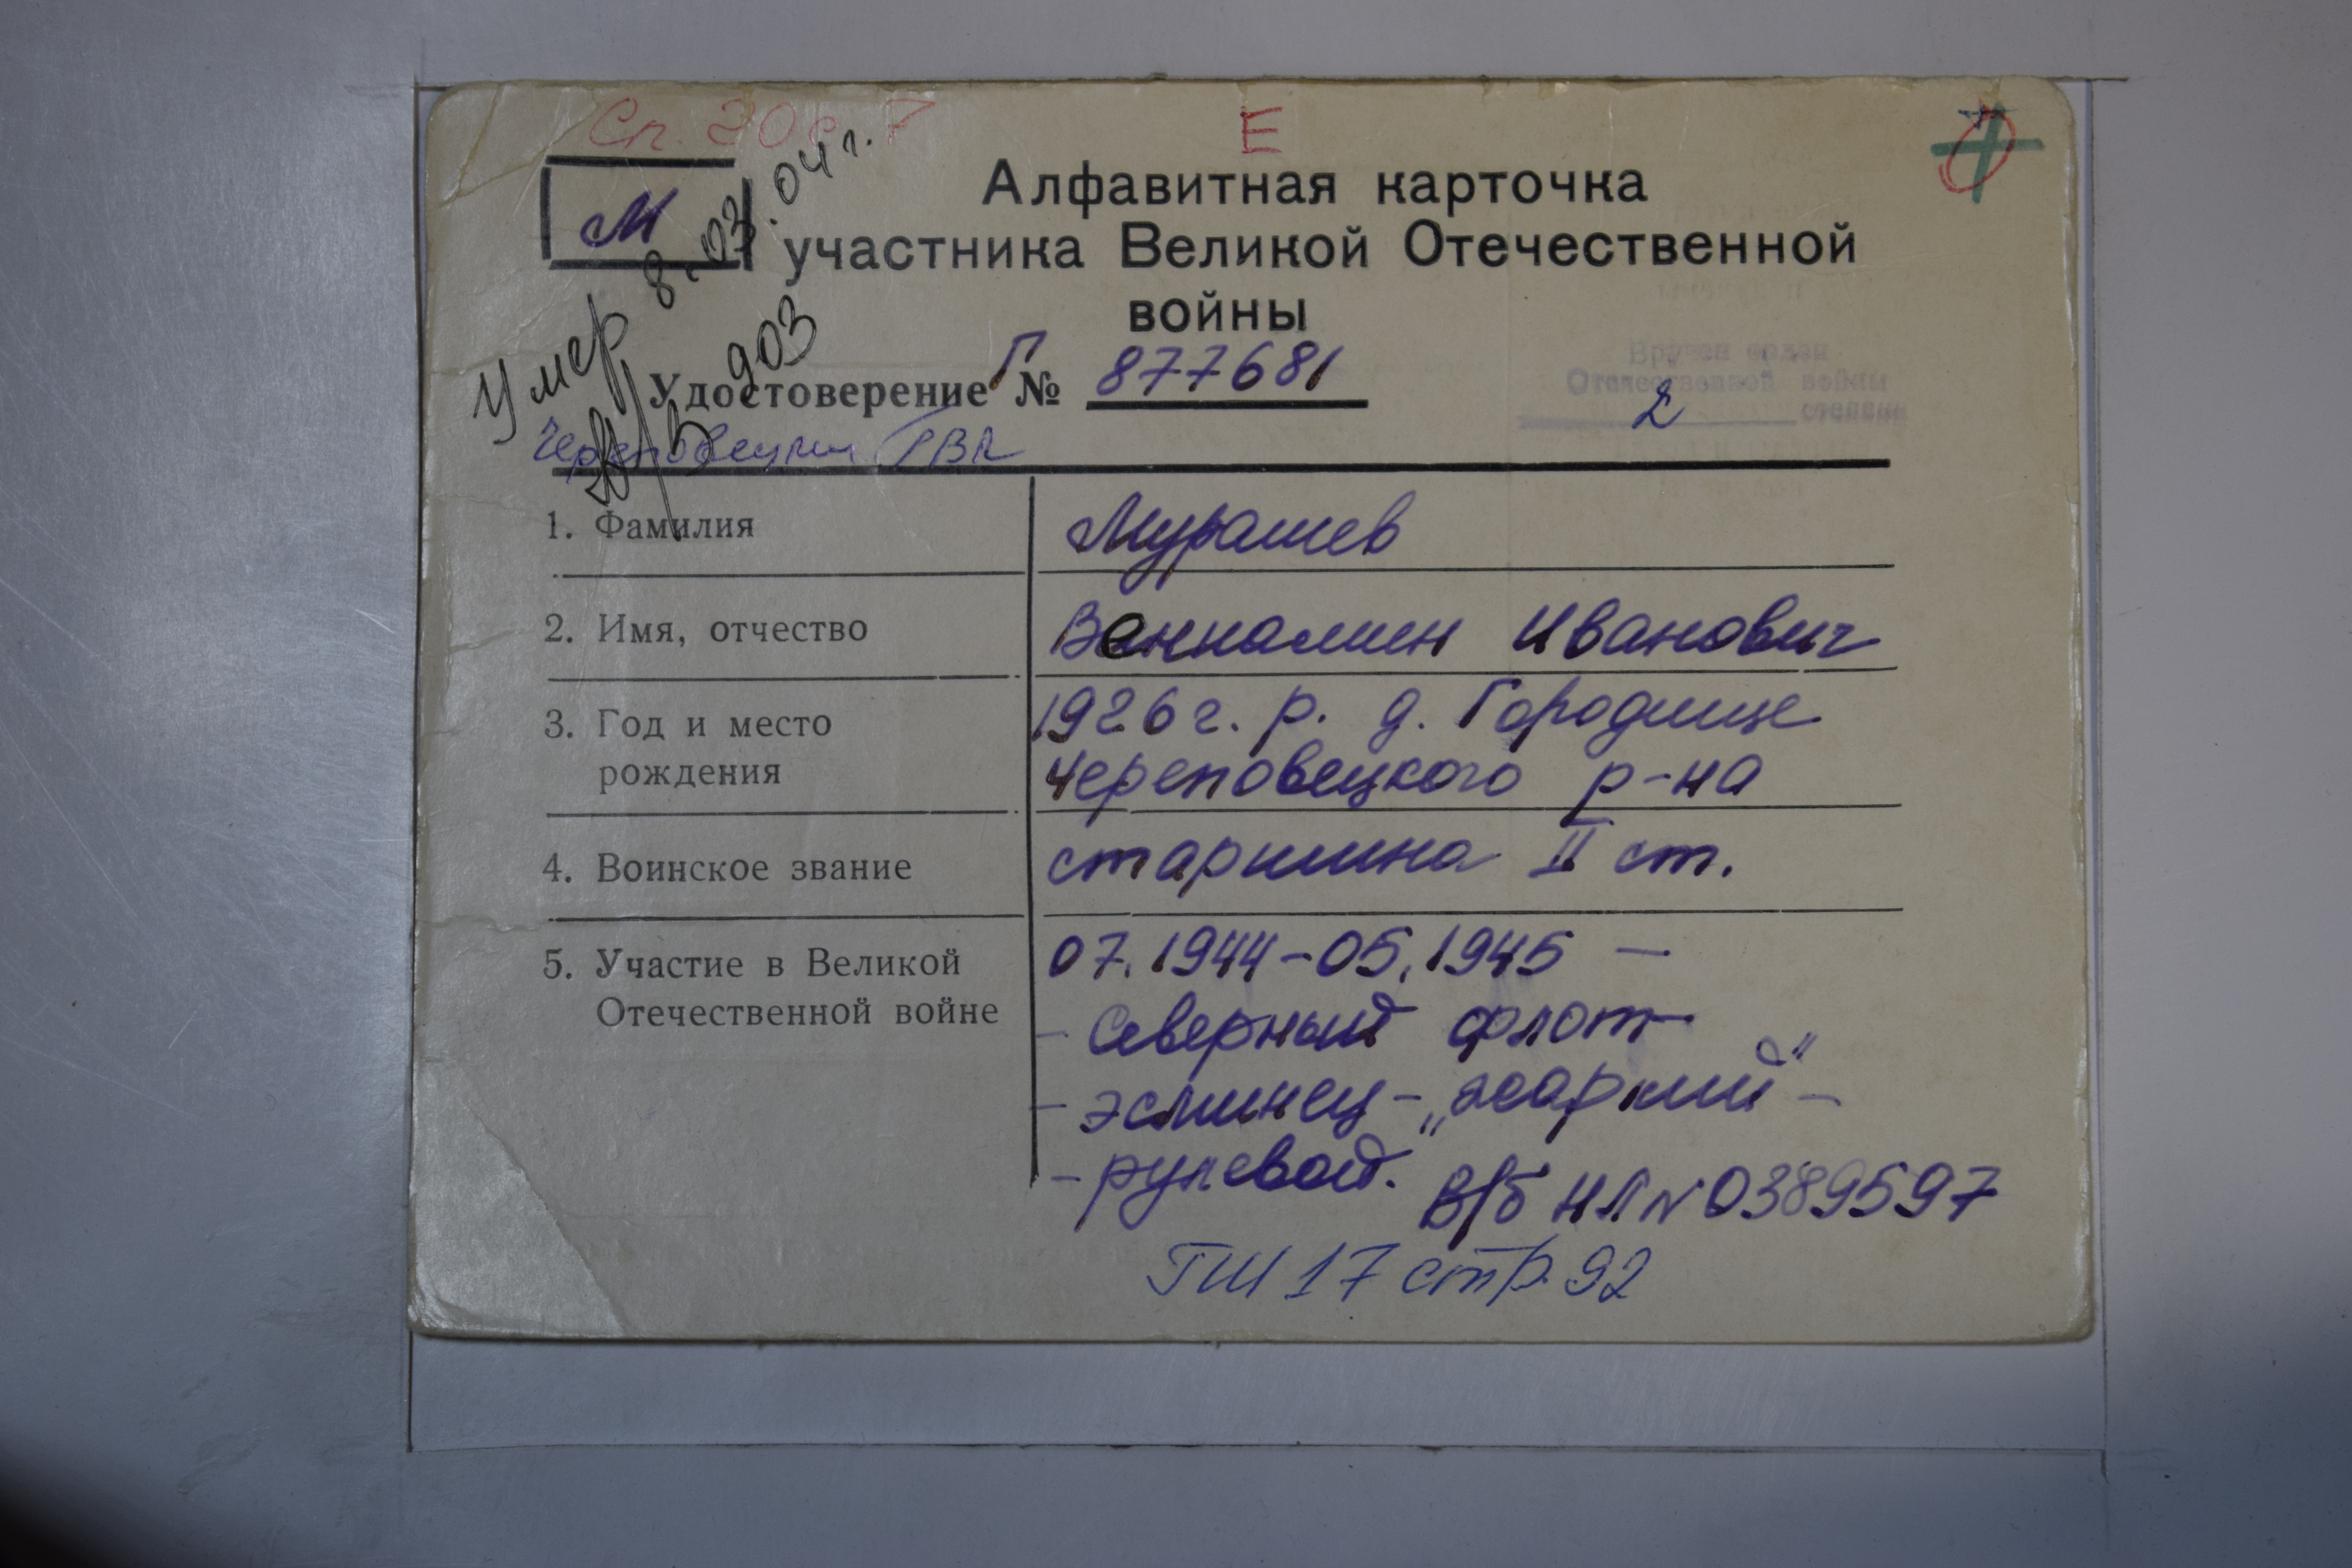 Сп. 20 с. 7
Е
М
Алфавитная карточка
участника Великой Отечественной
войны
Умер 8.03.04 г.
903
Удостоверение Г № 877681
Вручен орден
Отечественной войны
2 степени
Череповецкий ГВК
1. Фамилия
Мурашев
2. Имя, отчество
Вениамин Иванович
3. Год и место
рождения
1926 г. р. д. Городище
Череповецкого р-на
4. Воинское звание
старшина II ст.
5. Участие в Великой
Отечественной войне
07.1944-05.1945 —
- Северный флот
- эсминец - „жаркий" -
- рулевой.
В/б НЛ N 0389597
ГШ 17 стр. 92